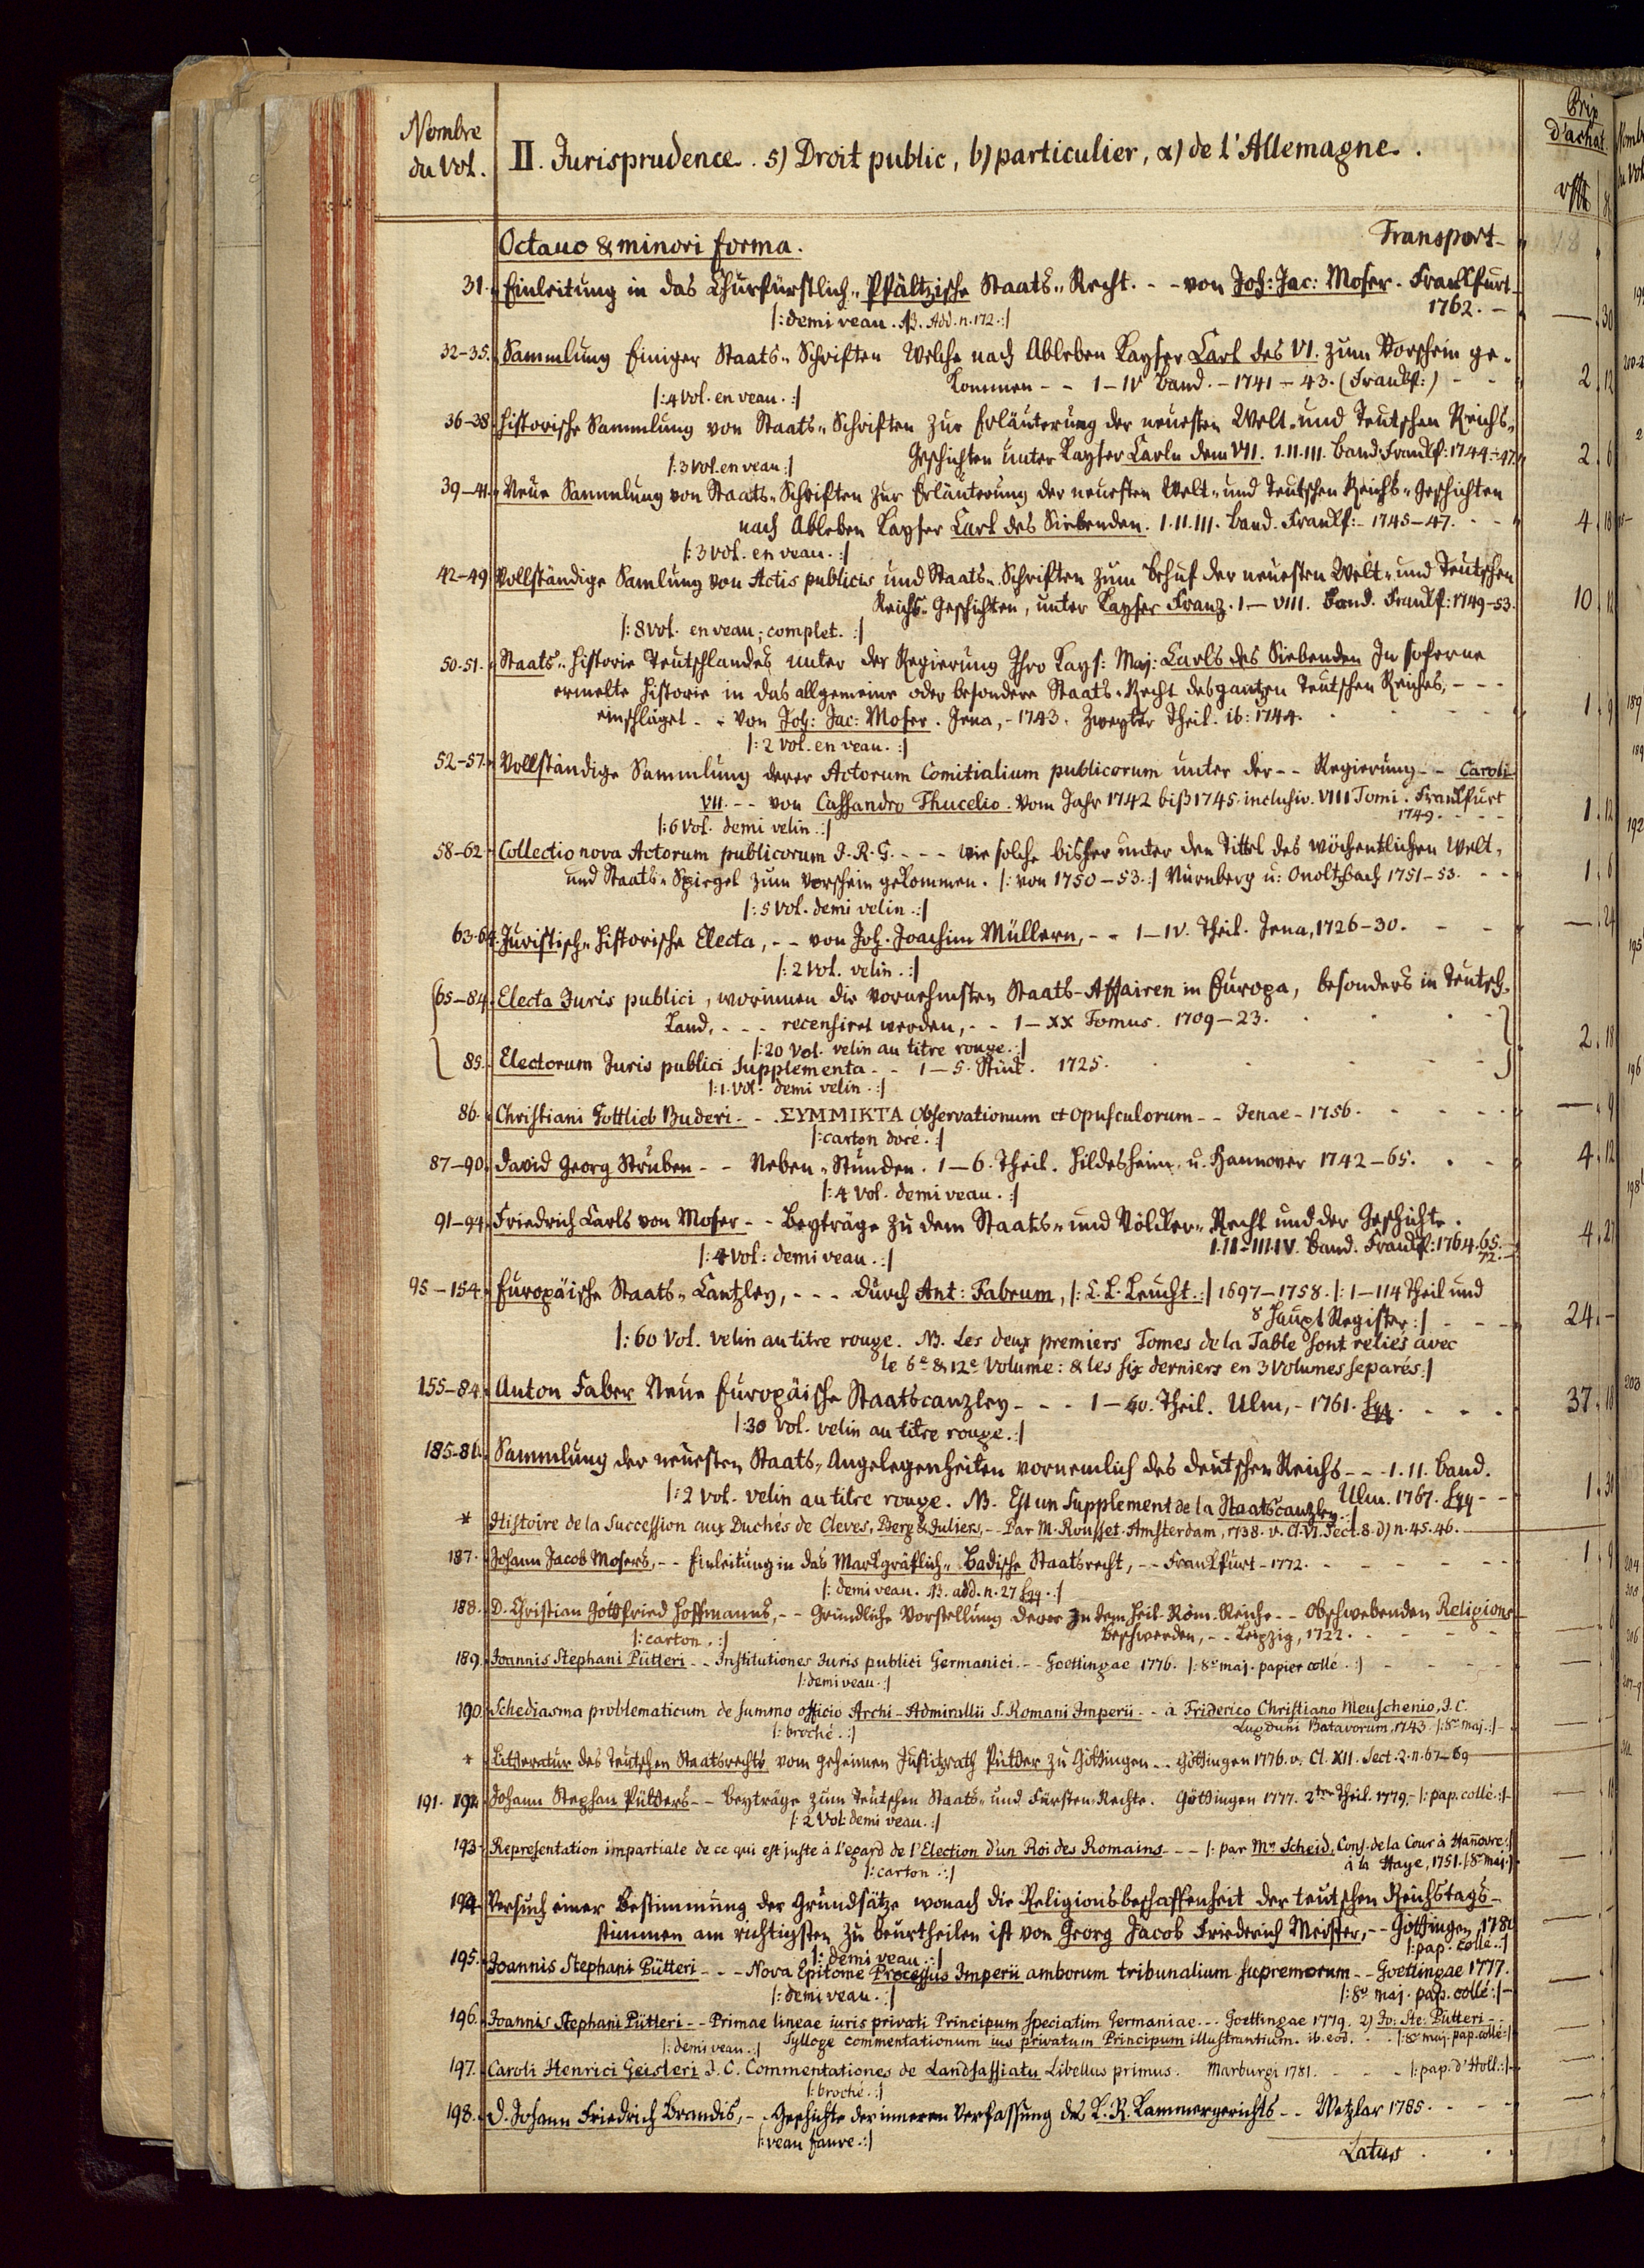 Nombre
du Vol.
II. Jurisprudence. 5) Droit public, b) particulier, α) de l'Allemagne.
Prix
d'achat.
Octavo & minori forma. Transport-
31. Einleitung in das Churfürstlich-Pfältzische Staats-Recht. - - von Joh: Jac: Moser. Franckfurt
1762. - — 30
|: demi veau. NB. Add. n. 172. :|
32-35. Sammlung Einiger Staats-Schriften Welche nach Ableben Kayser Carl des VI. zum Vorschein ge-
kommen - - I-IV Band. - 1741-43. (Franckf:) - - 2. 12
|: 4 Vol. en veau. :|
36-38 Historische Sammlung von Staats-Schriften zur Erläuterung der neuesten Welt- und Teutschen Reichs-
Geschichten unter Kayser Carln dem VII. I.II.III. Band. Franckf: 1744-47. 2. 6
|: 3 Vol. en veau :|
39-41. Neue Sammlung von Staats-Schriften zur Erläuterung der neuesten Welt- und Teutschen Reichs-Geschichten
nach Ableben Kayser Carl des Siebenden. I.II.III. Band. Franckf: - 1745-47. - - 4. 18
|: 3 Vol. en veau. :|
42-49 Vollständige Samlung von Actis publicis und Staats-Schriften zum Behuf der neuesten Welt- und Teutschen
Reichs-Geschichten, unter Kayser Franz. I-VIII. Band. Franckf: 1749-53. 10. 12
|: 8 Vol. en veau; complet. :|
50-51. Staats-Historie Teutschlandes unter der Regierung Ihro Kays: Maj: Carls des Siebenden In soferne
ermelte Historie in das allgemeine oder besondere Staats-Recht des gantzen Teutschen Reiches, - - -
einschläget - - von Joh: Jac: Moser. Jena, - 1743. Zweyter Theil. ib: 1744. 1. 9
|: 2 Vol. en veau. :|
52-57. Vollständige Sammlung derer Actorum Comitialium publicorum unter der - - Regierung - - Caroli
VII. - - von Cassandro Thucelio. Vom Jahr 1742 biß 1745. inclusiv. VIII Tomi. Franckfurt
1749. - - - 1. 12
|: 6 Vol. demi velin. :|
58-62 Collectio nova Actorum publicorum I. R. G. - - - wie solche bisher unter den Tittel des wöchentlichen Welt-
und Staats-Spiegel zum Vorschein gekommen. |: von 1750-53. :| Nürnberg u: Onoltzbach 1751-53. - - 1. 6
|: 5 Vol. demi velin. :|
63-64. Juristisch-Historische Electa, - - von Joh. Joachim Müllern, - - I-IV. Theil. Jena, 1726-30. - - — 24
|: 2 Vol. velin. :|
65-84. Electa Juris publici, worinnen die vornehmsten Staats-Affairen in Europa, besonders in Teutsch-
Land, - - - recensiret werden, - - I-XX Tomus. 1709-23.
|: 20 Vol. velin au titre rouge. :| 2. 18
85. Electorum Juris publici Supplementa - - 1-5. Stück. 1725.
|: 1. Vol. demi velin. :|
86. Christiani Gottlieb Buderi - - ΣΥΜΜΙΚΤΑ Observationum et Opusculorum - - Jenae - 1756. - - — 9
|: carton doré. :|
87-90. David Georg Struben - - Neben-Stunden. 1-6. Theil. Hildesheim u. Hannover 1742-65. - - 4. 12
|: 4 Vol. demi veau. :|
91-94. Friedrich Carls von Moser - - Beyträge zu dem Staats- und Völcker-Recht und der Geschichte.
I.II-III.IV. Band. Franckf: 1764. 65. 72. 4. 27
|: 4 Vol: demi veau. :|
95-154. Europäische Staats-Cantzley, - - - durch Ant: Fabrum, |: C. L. Leucht. :| 1697-1758. |: 1-114 Theil und
8 Haupt Register :| - - 24. -
|: 60 Vol. velin au titre rouge. NB. Les deux premiers Tomes de la Table sont reliés avec
le 6e & 12e Volume: & les six derniers en 3 Volumes separés. :|
155-84. Anton Faber Neue Europäische Staatscanzley - - - 1-60. Theil. Ulm, - 1761. sqq. - - - 37. 18
|: 30 Vol. velin au titre rouge. :|
185-86. Sammlung der neuesten Staats-Angelegenheiten vornemlich des deutschen Reichs - - - I. II. Band.
Ulm. 1767. sqq - - 1. 30
|: 2 Vol. velin au titre rouge. NB. Est un Supplement de la Staatscanzley. :|
* Histoire de la Succession aux Duchés de Cleves, Berg & Juliers, - Par M. Rousset. Amsterdam, 1738. v. Cl. VI. Sect. 8. d) n. 45. 46.
187. Johann Jacob Mosers, - - Einleitung in das Markgräflich-Badische Staatsrecht, - - Franckfurt - 1772. - - - - 1. 9
|: demi veau. NB. add. n. 27 sqq. :|
188. D. Christian Gottfried Hoffmanns, - - Gründliche Vorstellung derer In dem Heil. Röm. Reiche - - Obschwebenden Religions
beschwerden, - - Leipzig, 1722. - - - — 6
|: carton. :|
189. Joannis Stephani Pütteri - - Institutiones Juris publici Germanici. - - Goettingae 1776. |: 8o maj. papier collé. :| - - -
|: demi veau. :|
190. Schediasma problematicum de summo officio Archi-Admirallii S. Romani Imperii - - à Friderico Christiano Meuschenio, I. C.
Lugduni Batavorum, 1743. |: 8o maj. :| -
|: broché. :|
* Litteratur des Teutschen Staatsrechts vom geheimen Justitzrath Pütter zu Göttingen - - Göttingen 1776. v. Cl. XII. Sect. 2. n. 67-69
191. 192. Johann Stephan Pütters - - Beyträge zum Teutschen Staats- und Fürsten-Rechte. Göttingen 1777. 2ter Theil. 1779. - |: pap. collé :|
|: 2 Vol: demi veau. :|
193. Representation impartiale de ce qui est juste à l'egard de l'Election d'un Roi des Romains - - - |: par Mr Scheid, Cons. de la Cour à Hannovre :|
à la Haye, 1751. |: 8o maj. :|
|: carton. :|
194. Versuch einer Bestimmung der Grundsätze wonach die Religionsbeschaffenheit der teutschen Reichstags-
stimmen am richtigsten zu beurtheilen ist von Georg Jacob Friederich Meister, - - Göttingen 178
|: pap. collé. :|
|: demi veau. :|
195. Joannis Stephani Pütteri - - - Nova Epitome Processus Imperii amborum tribunalium supremorum - - Goettingae 1777.
|: demi veau. :| |: 8o maj. pap. collé :| -
196. Joannis Stephani Pütteri - - Primae lineae iuris privati Principum speciatim Germaniae - - - Goettingae 1779. 2) Jo: Ste: Pütteri - -
Sylloge commentationum ius privatum Principum illustrantium. ib. eod. - - |: 8o maj. pap. collé :|
|: demi veau. :|
197. Caroli Henrici Geisleri I. C. Commentationes de Landsassiatu Libellus primus. Marburgi 1781. - - - |: pap. d'Holl. :|
|: broché. :|
198. D. Johann Friedrich Brandis, - - Geschichte der inneren Verfassung des K. R. Kammergerichts - - Wetzlar 1785. - - -
|: veau fauve. :|
Latus